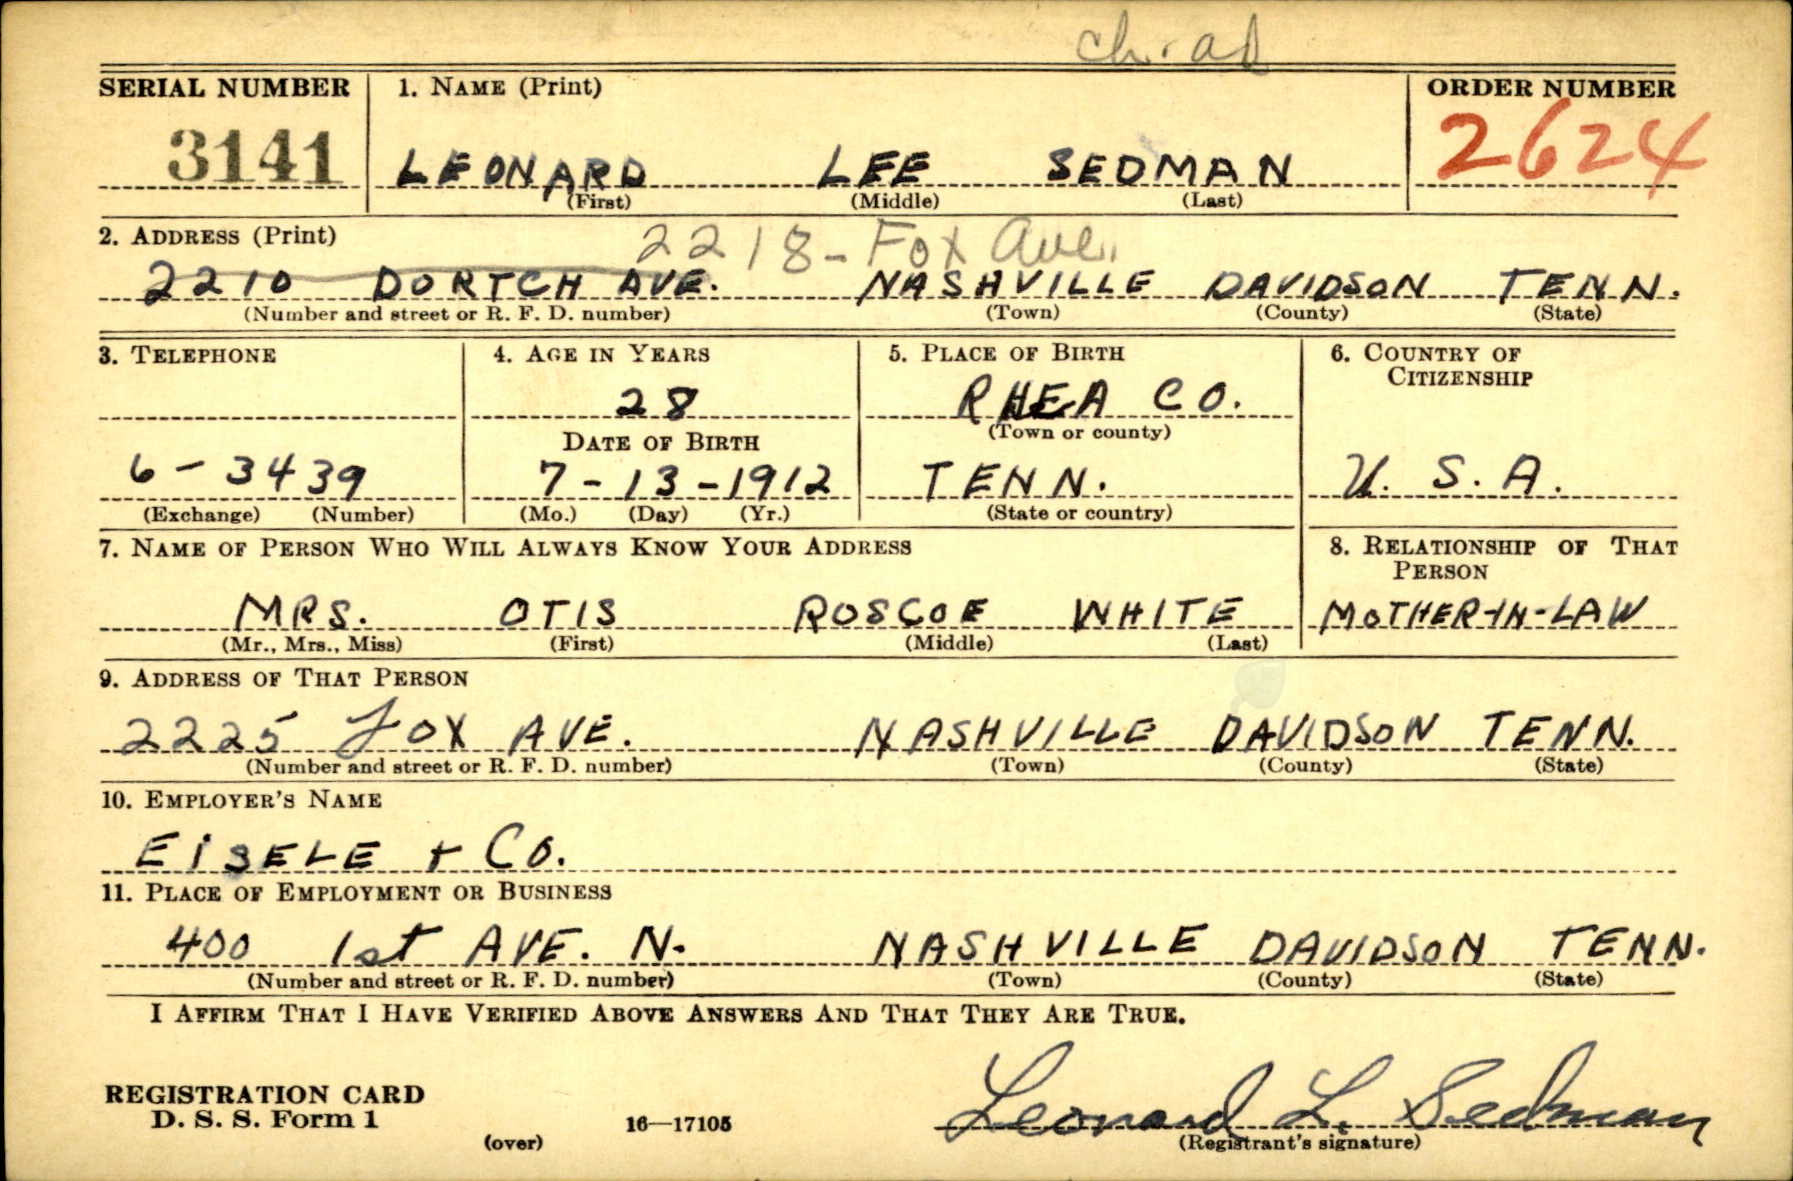 ch. ad
SERIAL NUMBER 1. NAME (Print) ORDER NUMBER
3141 LEONARD LEE SEDMAN 2624
(First) (Middle) (Last)
2. ADDRESS (Print) 2218 - Fox Ave.
2210 DORTCH AVE. NASHVILLE DAVIDSON TENN.
(Number and street or R. F. D. number) (Town) (County) (State)
3. TELEPHONE 4. AGE IN YEARS 5. PLACE OF BIRTH 6. COUNTRY OF
CITIZENSHIP
28 RHEA CO.
DATE OF BIRTH (Town or county)
6-3439 7-13-1912 TENN. U. S. A.
(Exchange) (Number) (Mo.) (Day) (Yr.) (State or country)
7. NAME OF PERSON WHO WILL ALWAYS KNOW YOUR ADDRESS 8. RELATIONSHIP OF THAT
PERSON
MRS. OTIS ROSCOE WHITE MOTHER-IN-LAW
(Mr., Mrs., Miss) (First) (Middle) (Last)
9. ADDRESS OF THAT PERSON
2225 FOX AVE. NASHVILLE DAVIDSON TENN.
(Number and street or R. F. D. number) (Town) (County) (State)
10. EMPLOYER'S NAME
EISELE + CO.
11. PLACE OF EMPLOYMENT OR BUSINESS
400 1st AVE. N. NASHVILLE DAVIDSON TENN.
(Number and street or R. F. D. number) (Town) (County) (State)
I AFFIRM THAT I HAVE VERIFIED ABOVE ANSWERS AND THAT THEY ARE TRUE.
REGISTRATION CARD
D. S. S. Form 1 16—17105 Leonard L. Sedman
(over) (Registrant's signature)